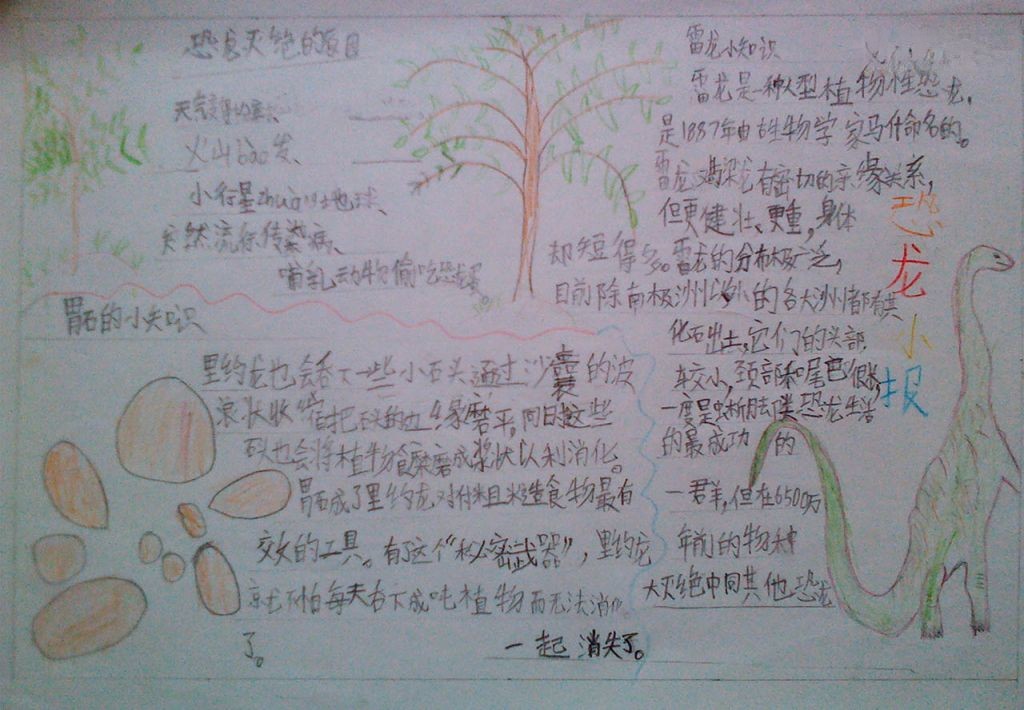 恐龙灭绝的原因
天气变化
火山bào发、
小行星zhuàng地球、
突然流行传染病、
哺乳动物偷吃恐龙蛋
胃石的小知识
里约龙也会吞下一些小石头通过沙囊的波
浪状收缩把石头的边缘磨平,同时这些
石头也会将植物食糜磨成浆状以利消化。
胃石成了里约龙对付粗糙食物最有
效的工具。有了这个“秘密武器”,里约龙
就不怕每天吞下成吨植物而无法消化
了。
雷龙小知识
雷龙是一种大型植物性恐龙,
是1887年由古生物学家马什命名的。
雷龙与梁龙有密切的亲缘关系,
但更健壮、更重,身体
却短得多。雷龙的分布极广泛,
目前除南极洲以外的各大洲都有其
化石出土,它们的头部
较小,颈部和尾巴很长,
一度是蜥脚类恐龙生活
的最成功的
一群,但在6500万
年前的物种
大灭绝中同其他恐龙
一起消失了。
恐龙小报